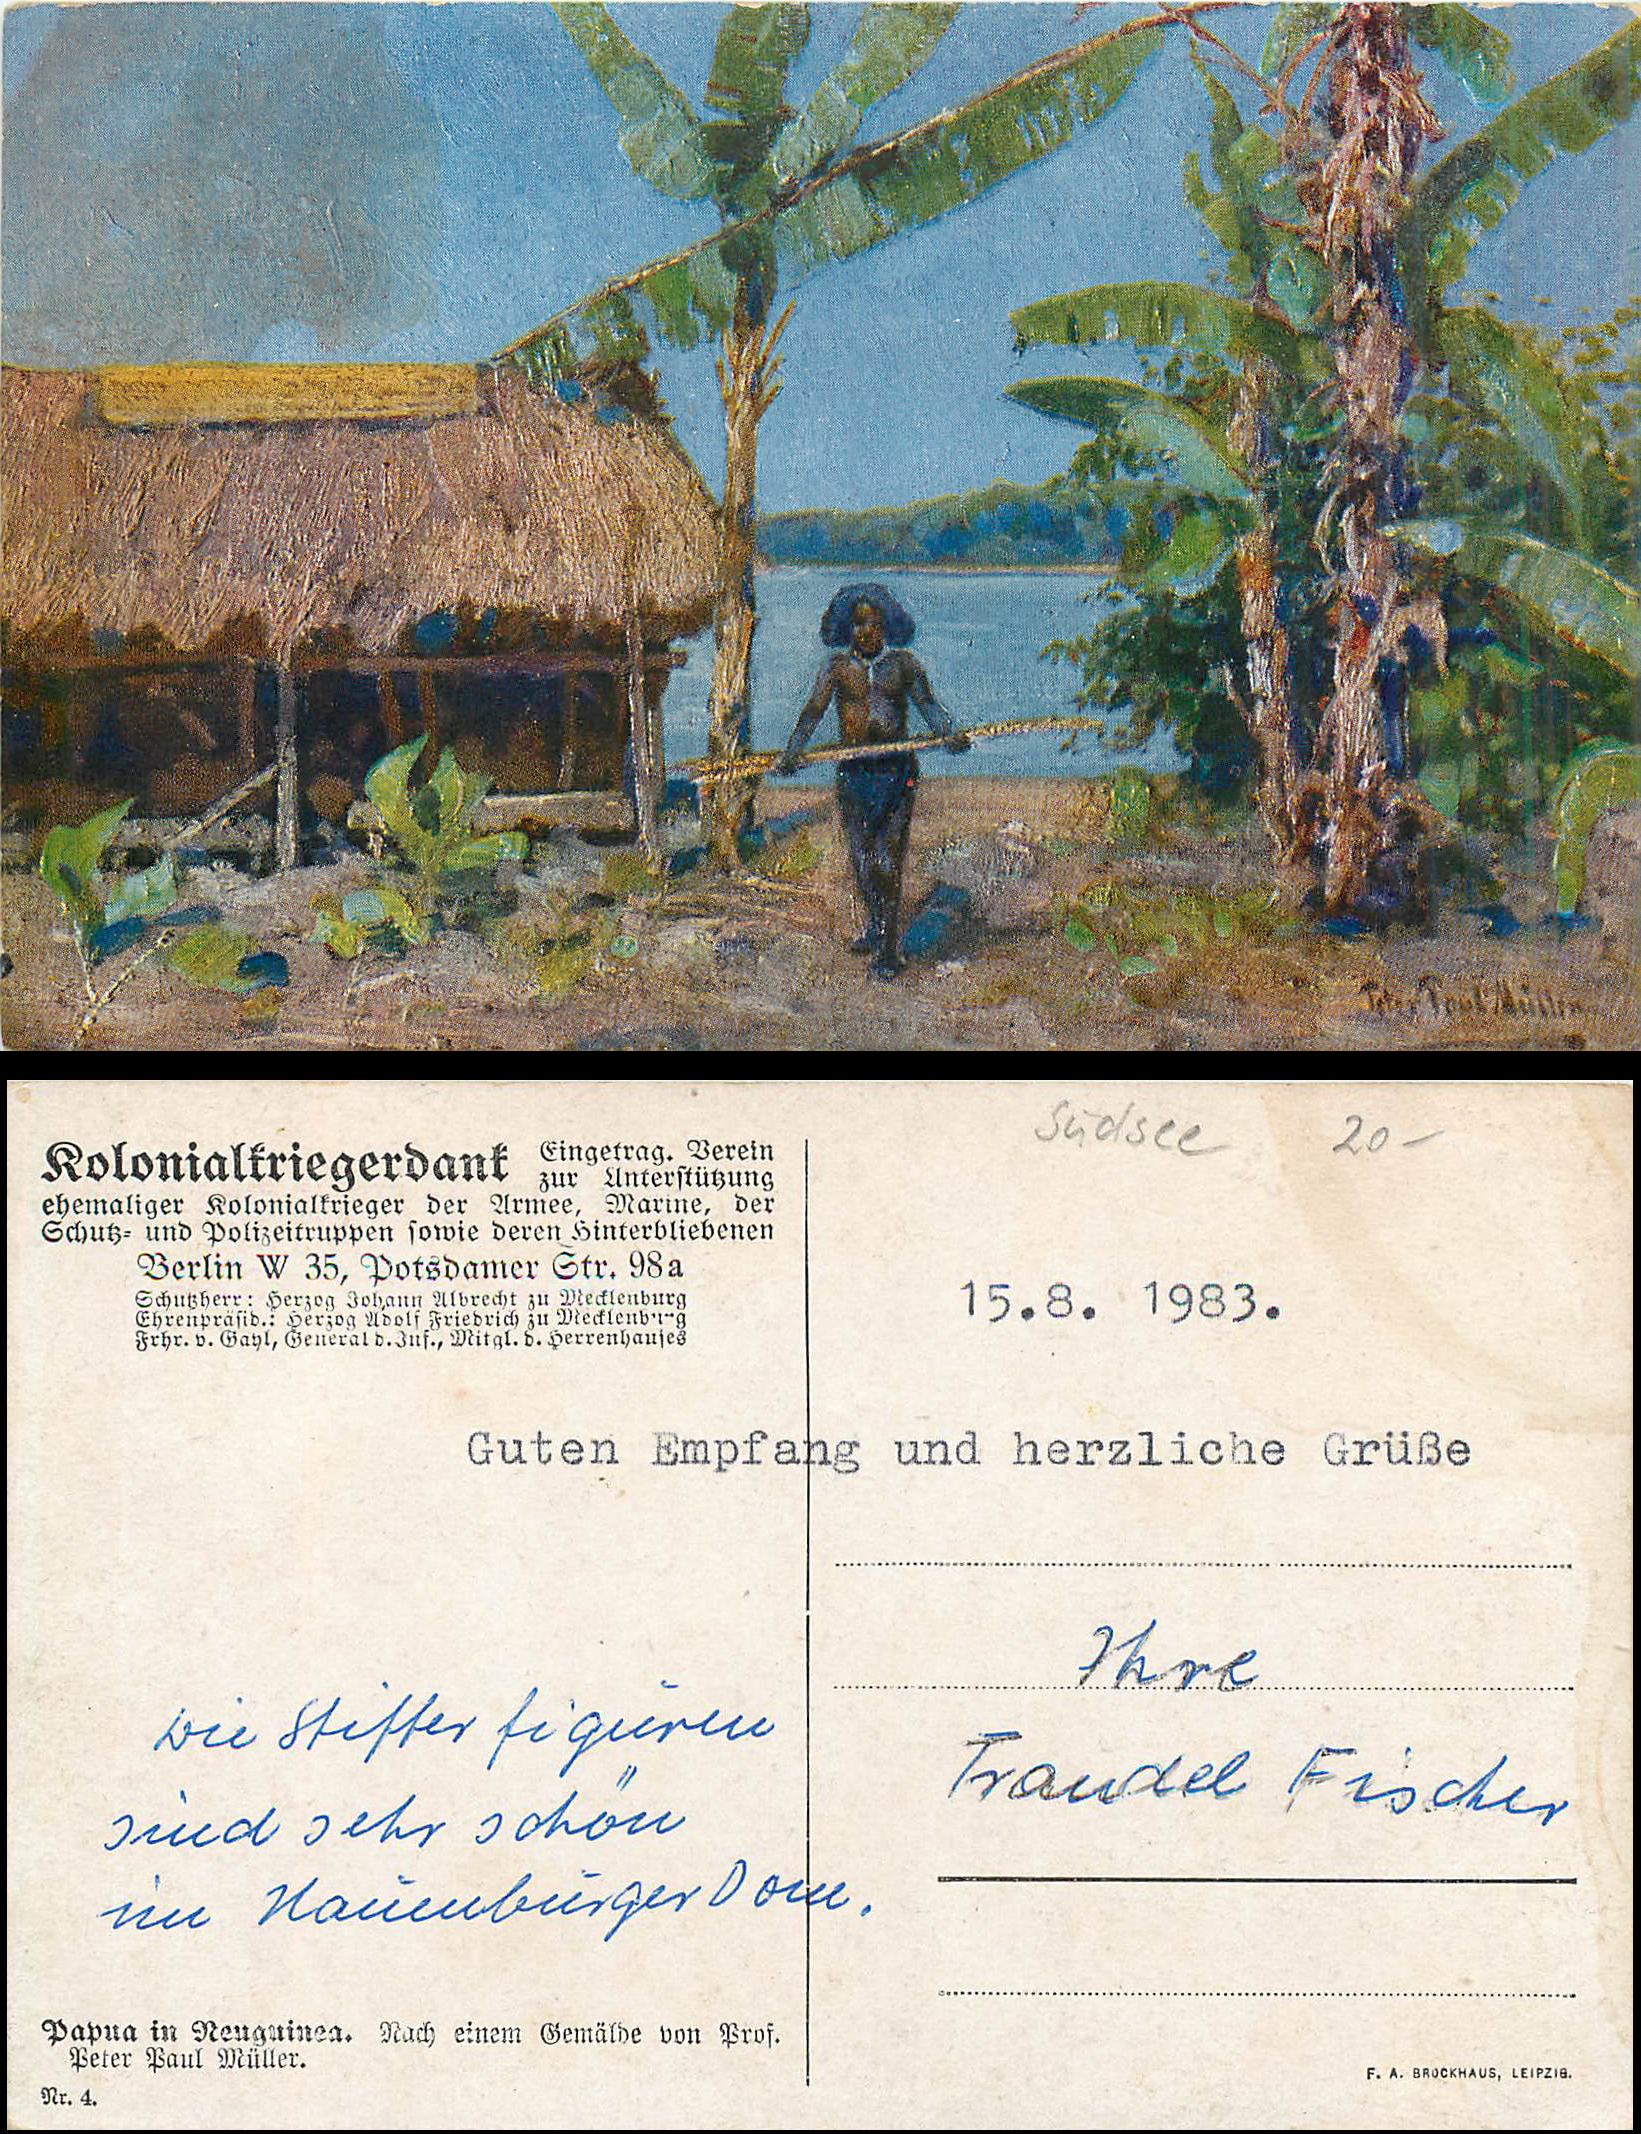 Peter Paul Müller
Kolonialkriegerdank Eingetrag. Verein
zur Unterstützung
ehemaliger Kolonialkrieger der Armee, Marine, der
Schutz- und Polizeitruppen sowie deren Hinterbliebenen
Berlin W 35, Potsdamer Str. 98a
Schutzherr: Herzog Johann Albrecht zu Mecklenburg
Ehrenpräsid.: Herzog Adolf Friedrich zu Mecklenburg
Frhr. v. Gayl, General d. Inf., Mitgl. d. Herrenhauses
Südsee 20-
15.8. 1983.
Guten Empfang und herzliche Grüße
Die Stifterfiguren
sind sehr schön
im Naumburger Dom.
Ihre
Traudel Fischer
Papua in Neuguinea. Nach einem Gemälde von Prof.
Peter Paul Müller.
Nr. 4.
F. A. BROCKHAUS, LEIPZIG.